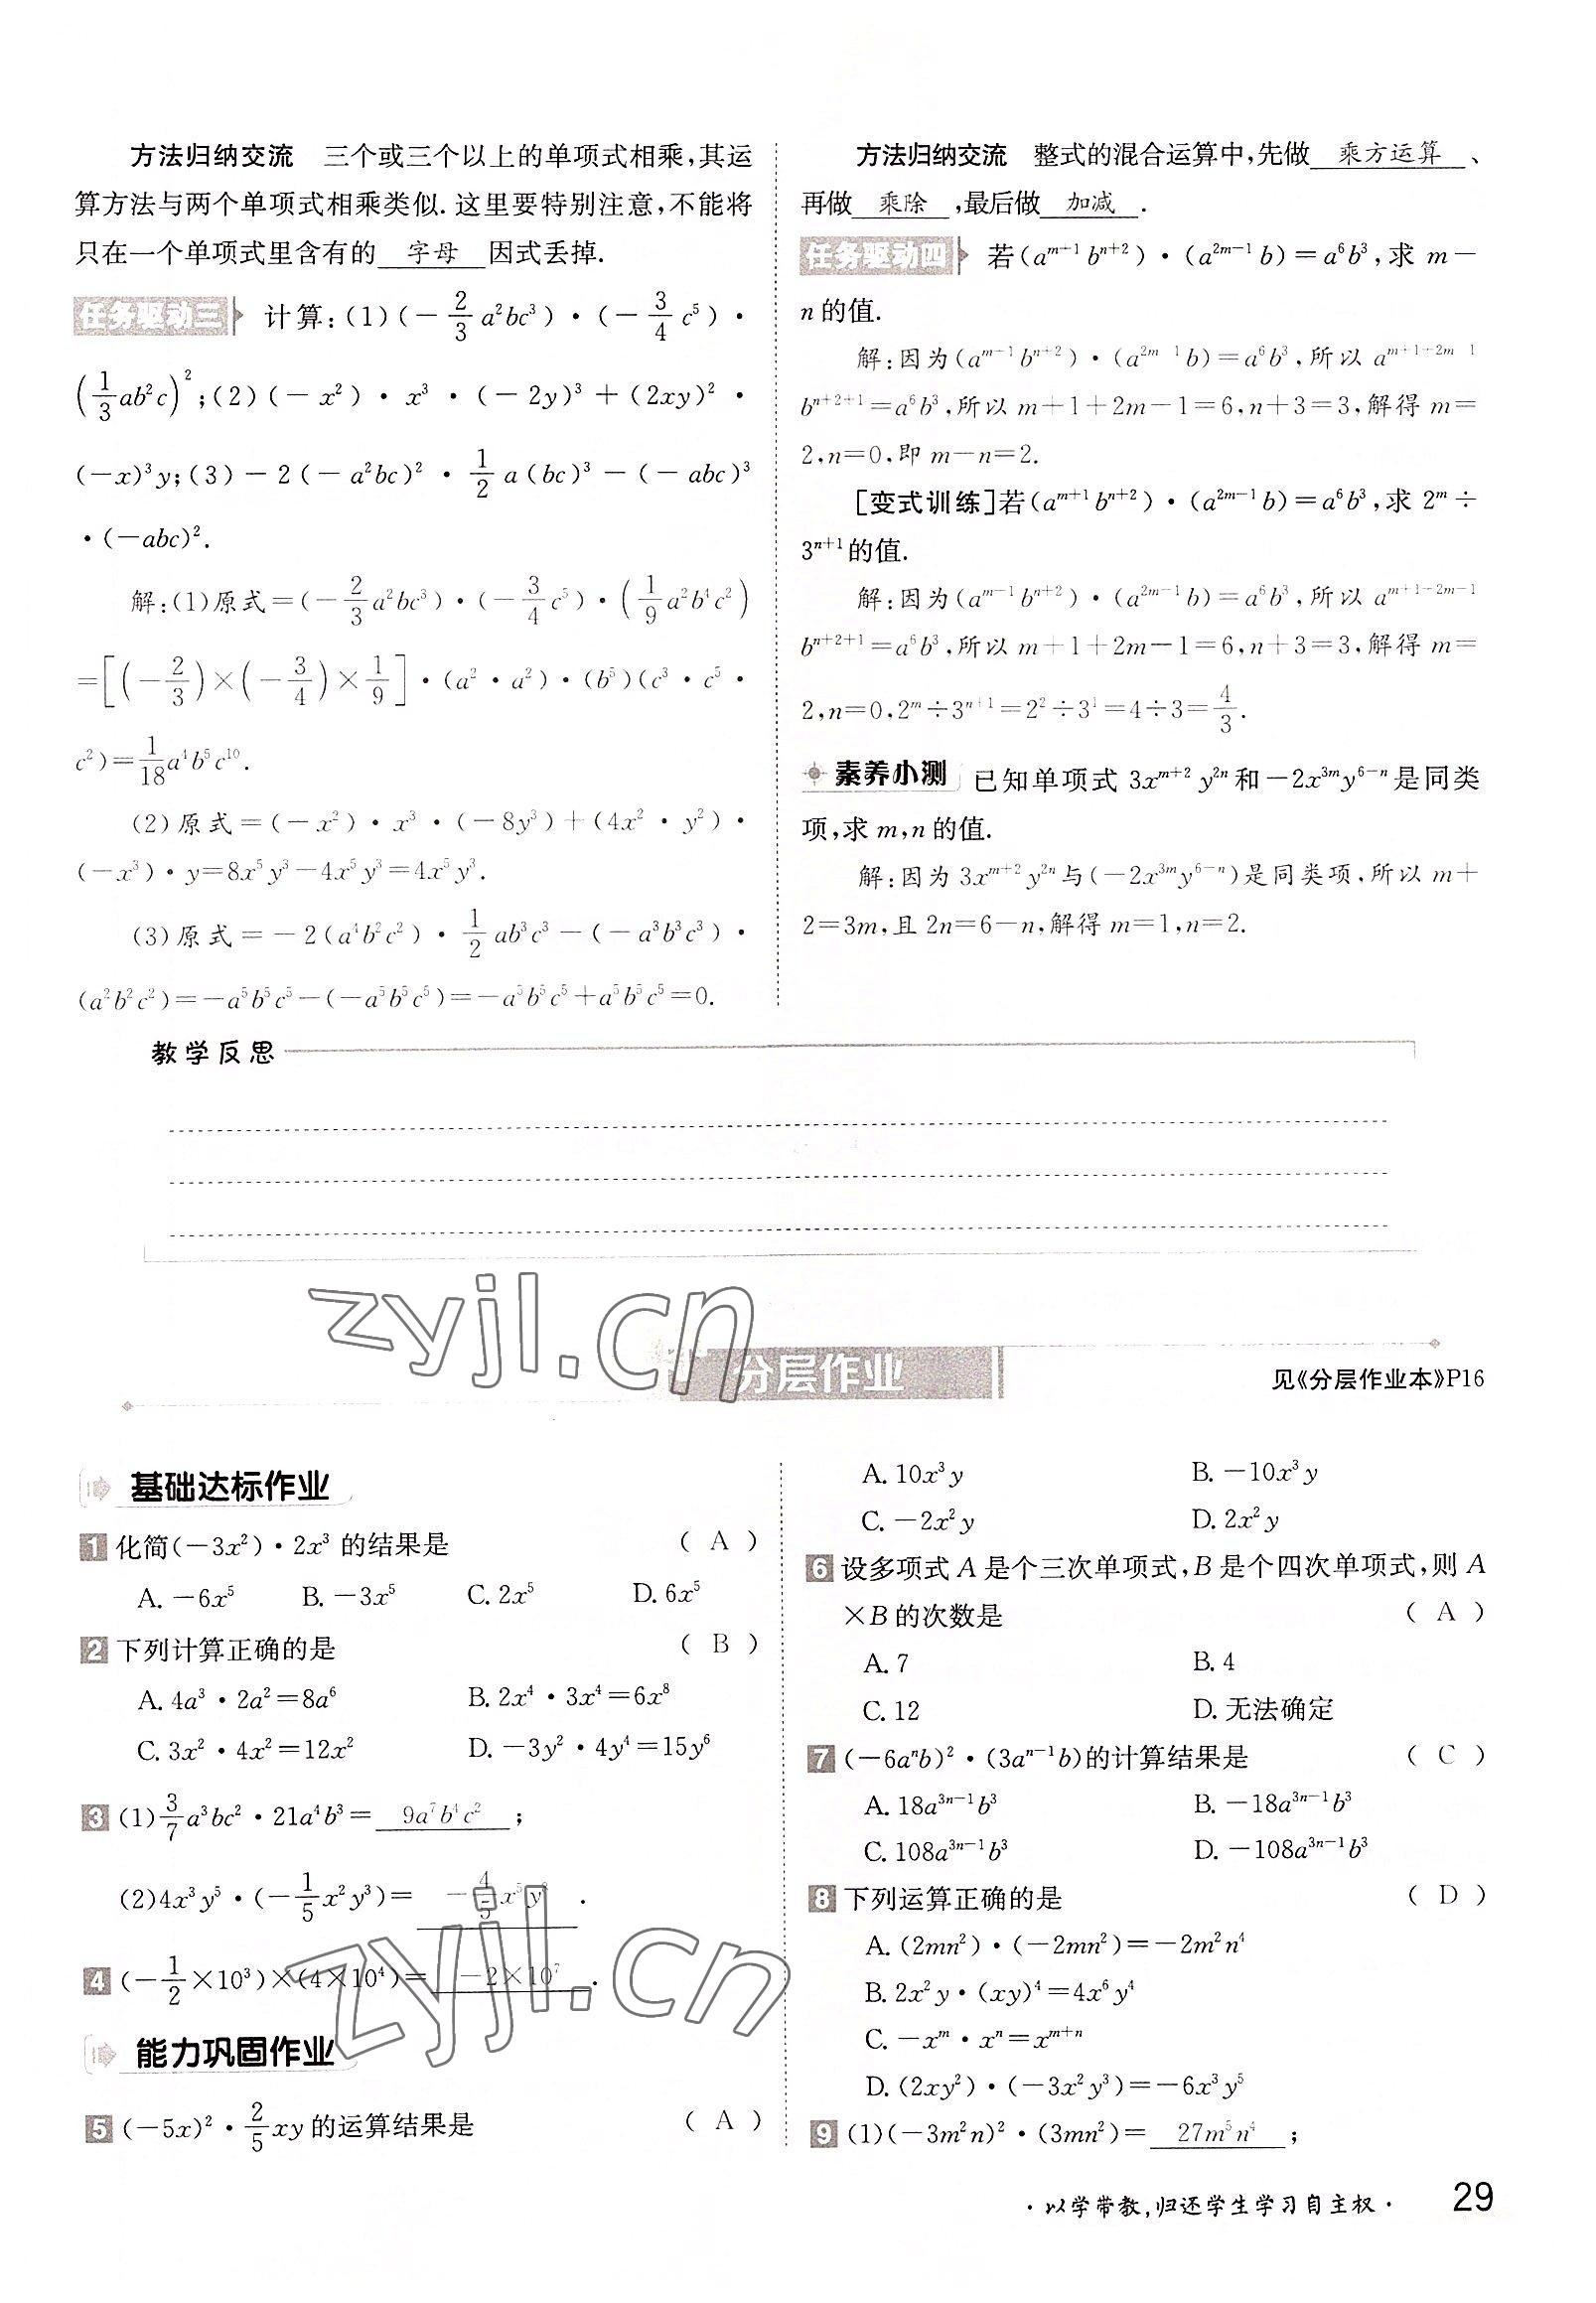 方法归纳交流 三个或三个以上的单项式相乘,其运
算方法与两个单项式相乘类似.这里要特别注意,不能将
只在一个单项式里含有的 字母 因式丢掉.
任务驱动三 计算:(1)(-2/3 a²bc³)·(-3/4 c⁵)·
(1/3 ab²c)²;(2)(-x²)·x³·(-2y)³+(2xy)²·
(-x)³y;(3)-2(-a²bc)²·1/2 a(bc)³-(-abc)³
·(-abc)².
解:(1)原式=(-2/3 a²bc³)·(-3/4 c⁵)·(1/9 a²b⁴c²)
=[(-2/3)×(-3/4)×1/9]·(a²·a²)·(b⁵)(c³·c⁵·
c²)=1/18 a⁴b⁵c¹⁰.
(2)原式=(-x²)·x³·(-8y³)+(4x²·y²)·
(-x³)·y=8x⁵y³-4x⁵y³=4x⁵y³.
(3)原式=-2(a⁴b²c²)·1/2 ab³c³-(-a³b³c³)·
(a²b²c²)=-a⁵b⁵c⁵-(-a⁵b⁵c⁵)=-a⁵b⁵c⁵+a⁵b⁵c⁵=0.
方法归纳交流 整式的混合运算中,先做 乘方运算 、
再做 乘除 ,最后做 加减 .
任务驱动四 若(aᵐ⁺¹bⁿ⁺²)·(a²ᵐ⁻¹b)=a⁶b³,求 m-
n的值.
解:因为(aᵐ⁺¹bⁿ⁺²)·(a²ᵐ⁻¹b)=a⁶b³,所以 aᵐ⁺¹⁺²ᵐ⁻¹
bⁿ⁺²⁺¹=a⁶b³,所以 m+1+2m-1=6,n+3=3,解得 m=
2,n=0,即 m-n=2.
[变式训练]若(aᵐ⁺¹bⁿ⁺²)·(a²ᵐ⁻¹b)=a⁶b³,求 2ᵐ÷
3ⁿ⁺¹的值.
解:因为(aᵐ⁺¹bⁿ⁺²)·(a²ᵐ⁻¹b)=a⁶b³,所以 aᵐ⁺¹⁺²ᵐ⁻¹
bⁿ⁺²⁺¹=a⁶b³,所以 m+1+2m-1=6,n+3=3,解得 m=
2,n=0,2ᵐ÷3ⁿ⁺¹=2²÷3¹=4÷3=4/3.
素养小测 已知单项式 3xᵐ⁺²y²ⁿ和-2x³ᵐy⁶⁻ⁿ是同类
项,求 m,n 的值.
解:因为 3xᵐ⁺²y²ⁿ与(-2x³ᵐy⁶⁻ⁿ)是同类项,所以 m+
2=3m,且 2n=6-n,解得 m=1,n=2.
教学反思
zyjl.cn
分层作业
见《分层作业本》P16
基础达标作业
1 化简(-3x²)·2x³ 的结果是 ( A )
A. -6x⁵ B. -3x⁵ C. 2x⁵ D. 6x⁵
2 下列计算正确的是 ( B )
A. 4a³·2a²=8a⁶ B. 2x⁴·3x⁴=6x⁸
C. 3x²·4x²=12x² D. -3y²·4y⁴=15y⁶
3 (1)3/7 a³bc²·21a⁴b³= 9a⁷b⁴c² ;
(2)4x³y⁵·(-1/5 x²y³)= -4/5 x⁵y⁸ .
4 (-1/2×10³)×(4×10⁴)= -2×10⁷ .
zyjl.cn
能力巩固作业
5 (-5x)²·2/5 xy 的运算结果是 ( A )
A. 10x³y B. -10x³y
C. -2x²y D. 2x²y
6 设多项式 A 是个三次单项式,B 是个四次单项式,则 A
×B 的次数是 ( A )
A. 7 B. 4
C. 12 D. 无法确定
7 (-6aⁿb)²·(3aⁿ⁻¹b)的计算结果是 ( C )
A. 18a³ⁿ⁻¹b³ B. -18a³ⁿ⁻¹b³
C. 108a³ⁿ⁻¹b³ D. -108a³ⁿ⁻¹b³
8 下列运算正确的是 ( D )
A. (2mn²)·(-2mn²)=-2m²n⁴
B. 2x²y·(xy)⁴=4x⁶y⁴
C. -xᵐ·xⁿ=xᵐ⁺ⁿ
D. (2xy²)·(-3x²y³)=-6x³y⁵
9 (1)(-3m²n)²·(3mn²)= 27m⁵n⁴ ;
·以学带教,归还学生学习自主权· 29